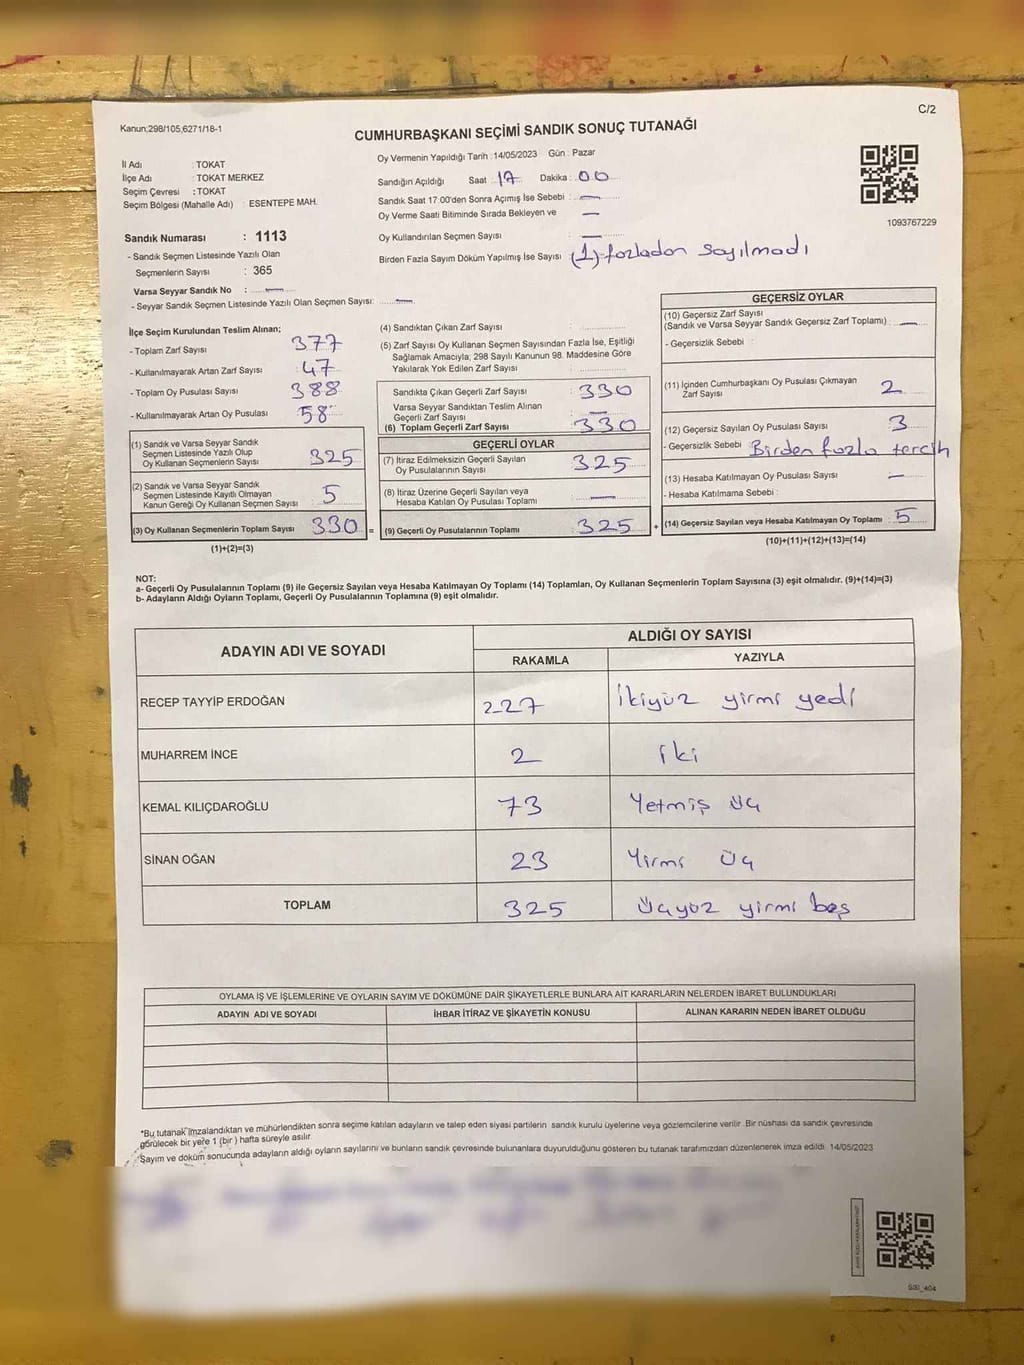 C/2
Kanun;298/105,6271/18-1
CUMHURBAŞKANI SEÇİMİ SANDIK SONUÇ TUTANAĞI
İl Adı : TOKAT
İlçe Adı : TOKAT MERKEZ
Seçim Çevresi : TOKAT
Seçim Bölgesi (Mahalle Adı) : ESENTEPE MAH.
Oy Vermenin Yapıldığı Tarih :14/05/2023 Gün : Pazar
Sandığın Açıldığı Saat : 17 Dakika : 00
Sandık Saat 17:00'den Sonra Açımış İse Sebebi : —
Oy Verme Saati Bitiminde Sırada Bekleyen ve —
Oy Kullandırılan Seçmen Sayısı : —
Birden Fazla Sayım Döküm Yapılmış İse Sayısı (1) fazladan sayılmadı
1093767229
Sandık Numarası : 1113
- Sandık Seçmen Listesinde Yazılı Olan
Seçmenlerin Sayısı : 365
Varsa Seyyar Sandık No : —
- Seyyar Sandık Seçmen Listesinde Yazılı Olan Seçmen Sayısı: —
İlçe Seçim Kurulundan Teslim Alınan;
- Toplam Zarf Sayısı 377
- Kullanılmayarak Artan Zarf Sayısı : 47
- Toplam Oy Pusulası Sayısı : 388
- Kullanılmayarak Artan Oy Pusulası : 58
(1) Sandık ve Varsa Seyyar Sandık
Seçmen Listesinde Yazılı Olup
Oy Kullanan Seçmenlerin Sayısı 325
(2) Sandık ve Varsa Seyyar Sandık
Seçmen Listesinde Kayıtlı Olmayan
Kanun Gereği Oy Kullanan Seçmen Sayısı 5
(3) Oy Kullanan Seçmenlerin Toplam Sayısı 330 =
(1)+(2)=(3)
(4) Sandıktan Çıkan Zarf Sayısı :
(5) Zarf Sayısı Oy Kullanan Seçmen Sayısından Fazla İse, Eşitliği
Sağlamak Amacıyla; 298 Sayılı Kanunun 98. Maddesine Göre
Yakılarak Yok Edilen Zarf Sayısı :
Sandıkta Çıkan Geçerli Zarf Sayısı : 330
Varsa Seyyar Sandıktan Teslim Alınan
Geçerli Zarf Sayısı : —
(6) Toplam Geçerli Zarf Sayısı : 330
GEÇERLİ OYLAR
(7) İtiraz Edilmeksizin Geçerli Sayılan
Oy Pusulalarının Sayısı : 325
(8) İtiraz Üzerine Geçerli Sayılan veya
Hesaba Katılan Oy Pusulası Toplamı : —
(9) Geçerli Oy Pusulalarının Toplamı : 325 +
GEÇERSİZ OYLAR
(10) Geçersiz Zarf Sayısı
(Sandık ve Varsa Seyyar Sandık Geçersiz Zarf Toplamı) : —
- Geçersizlik Sebebi :
(11) İçinden Cumhurbaşkanı Oy Pusulası Çıkmayan
Zarf Sayısı 2
(12) Geçersiz Sayılan Oy Pusulası Sayısı : 3
- Geçersizlik Sebebi : Birden fazla tercih
(13) Hesaba Katılmayan Oy Pusulası Sayısı : —
- Hesaba Katılmama Sebebi :
(14) Geçersiz Sayılan veya Hesaba Katılmayan Oy Toplamı : 5
(10)+(11)+(12)+(13)=(14)
NOT:
a- Geçerli Oy Pusulalarının Toplamı (9) ile Geçersiz Sayılan veya Hesaba Katılmayan Oy Toplamı (14) Toplamları, Oy Kullanan Seçmenlerin Toplam Sayısına (3) eşit olmalıdır. (9)+(14)=(3)
b- Adayların Aldığı Oyların Toplamı, Geçerli Oy Pusulalarının Toplamına (9) eşit olmalıdır.
ADAYIN ADI VE SOYADI ALDIĞI OY SAYISI
RAKAMLA YAZIYLA
RECEP TAYYİP ERDOĞAN 227 ikiyüz yirmi yedi
MUHARREM İNCE 2 iki
KEMAL KILIÇDAROĞLU 73 Yetmiş üç
SİNAN OĞAN 23 Yirmi üç
TOPLAM 325 üçyüz yirmi beş
OYLAMA İŞ VE İŞLEMLERİNE VE OYLARIN SAYIM VE DÖKÜMÜNE DAİR ŞİKAYETLERLE BUNLARA AİT KARARLARIN NELERDEN İBARET BULUNDUKLARI
ADAYIN ADI VE SOYADI İHBAR İTİRAZ VE ŞİKAYETİN KONUSU ALINAN KARARIN NEDEN İBARET OLDUĞU
*Bu tutanak imzalandıktan ve mühürlendikten sonra seçime katılan adayların ve talep eden siyasi partilerin sandık kurulu üyelerine veya gözlemcilerine verilir. Bir nüshası da sandık çevresinde
görülecek bir yere 1 (bir ) hafta süreyle asılır.
*Sayım ve döküm sonucunda adayların aldığı oyların sayılarını ve bunların sandık çevresinde bulunanlara duyurulduğunu gösteren bu tutanak tarafımızdan düzenlenerek imza edildi. 14/05/2023